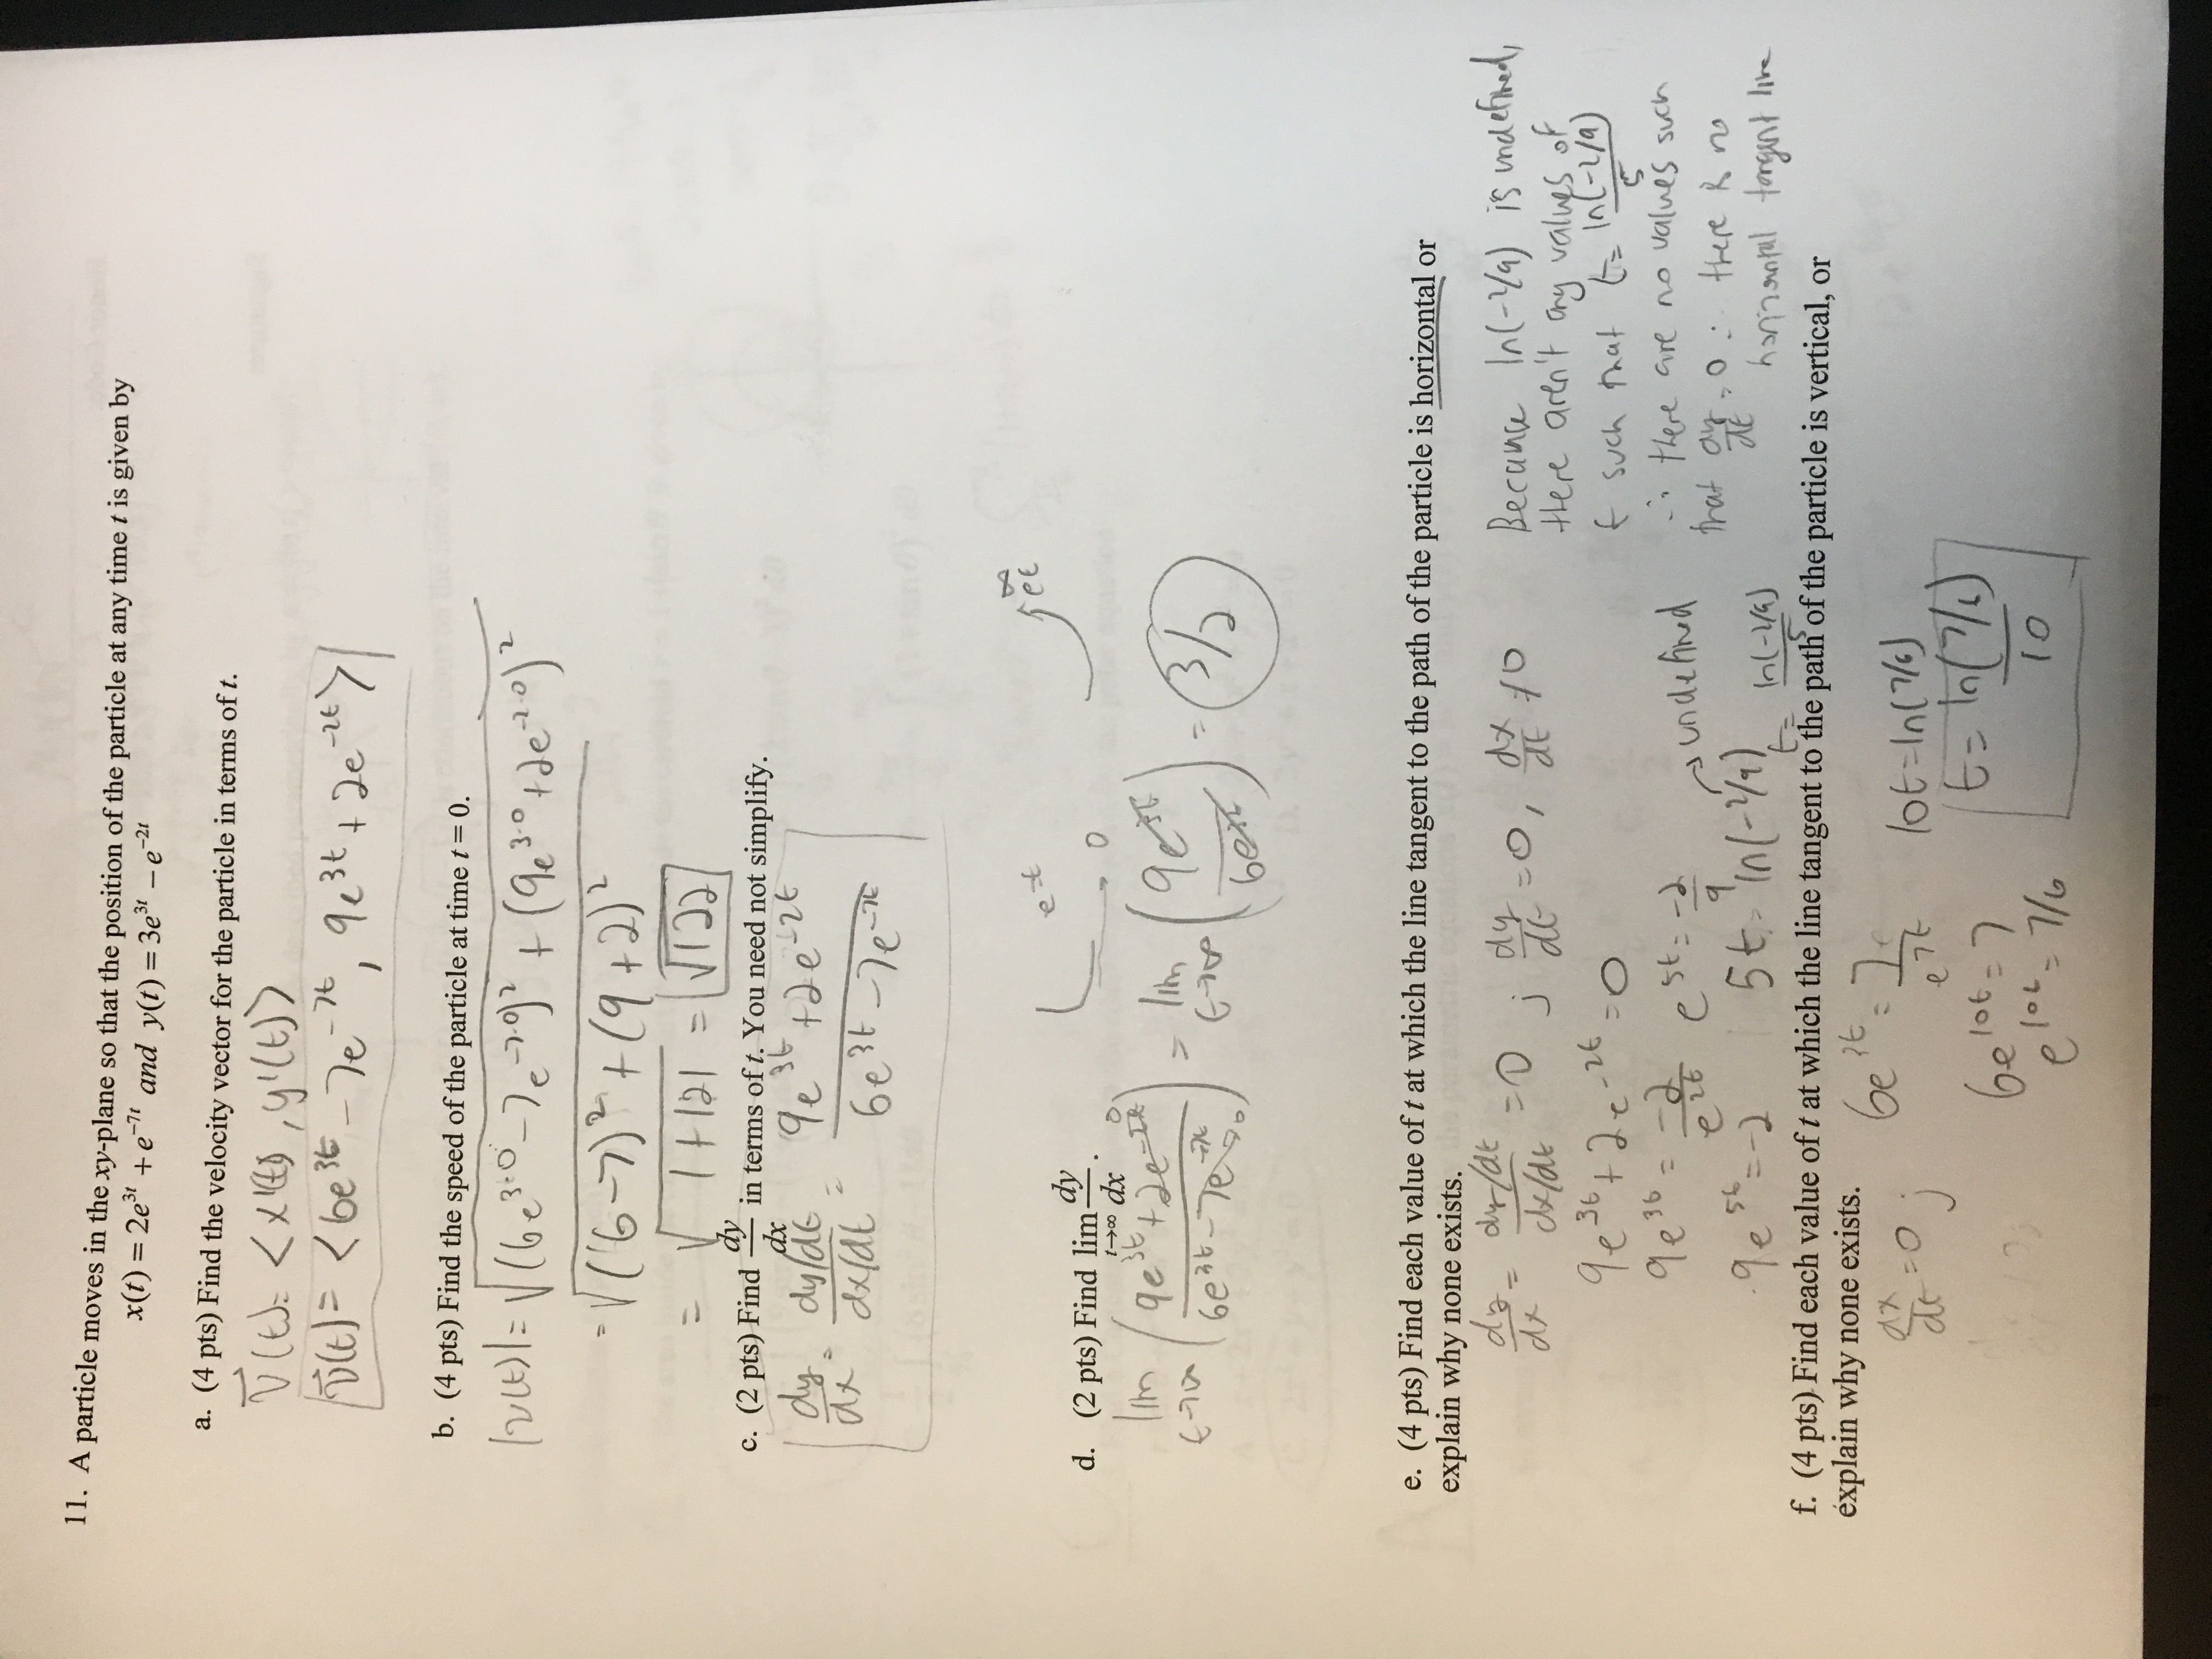 11. A particle moves in the xy-plane so that the position of the particle at any time t is given by
x(t) = 2e^{3t} + e^{-7t} and y(t) = 3e^{3t} - e^{-2t}
a. (4 pts) Find the velocity vector for the particle in terms of t.
v⃗(t) = <x'(t), y'(t)>
v⃗(t) = <6e^{3t} - 7e^{-7t}, 9e^{3t} + 2e^{-2t}>
b. (4 pts) Find the speed of the particle at time t = 0.
|v(t)| = √((6e^{3·0} - 7e^{-7·0})² + (9e^{3·0} + 2e^{-2·0})²)
= √((6-7)² + (9+2)²)
= √(1+121) = √122
c. (2 pts) Find dy/dx in terms of t. You need not simplify.
dy/dx = (dy/dt)/(dx/dt) = (9e^{3t} + 2e^{-2t})/(6e^{3t} - 7e^{-7t})
e^{-t} → 0
e^{t} ∞
d. (2 pts) Find lim t→∞ dy/dx.
lim t→∞ ((9e^{3t} + 2e^{-2t} 0)/(6e^{3t} - 7e^{-7t} → 0)) = lim t→∞ (9e^{3t}/6e^{3t}) = 3/2
e. (4 pts) Find each value of t at which the line tangent to the path of the particle is horizontal or
explain why none exists.
dy/dx = (dy/dt)/(dx/dt) = 0 ; dy/dt = 0, dx/dt ≠ 0
9e^{3t} + 2e^{-2t} = 0
9e^{3t} = -2/e^{2t} e^{5t} = -2/9
9e^{5t} = -2 5t = ln(-2/9) → undefined
t = ln(-2/9)/5
Because ln(-2/9) is undefined,
there aren't any values of
t such that t = ln(-2/9)/5
∴ there are no values such
that dy/dt = 0 ∴ there is no
horizontal tangent line
f. (4 pts) Find each value of t at which the line tangent to the path of the particle is vertical, or
explain why none exists.
dx/dt = 0 ; 6e^{3t} = 7/e^{7t}
6e^{10t} = 7
e^{10t} = 7/6
10t = ln(7/6)
t = ln(7/6)/10